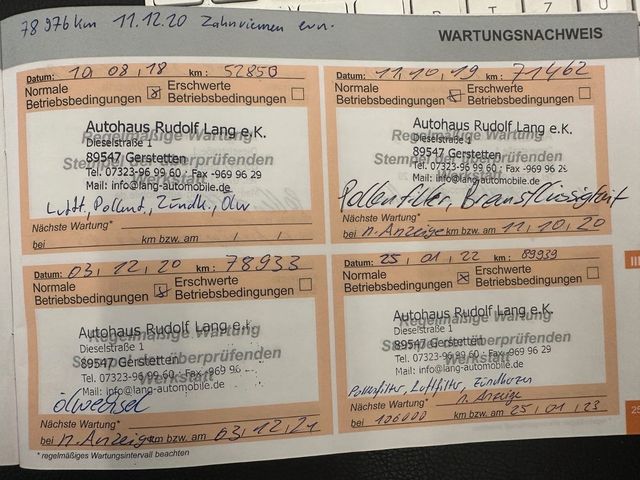 78 976 km 11.12.20 Zahnriemen ern.
WARTUNGSNACHWEIS
Datum: 10.08.18 km: 52850
Normale Betriebsbedingungen Erschwerte Betriebsbedingungen
Autohaus Rudolf Lang e.K.
Regelmäßige Wartung
Dieselstraße 1
Stempel der überprüfenden
89547 Gerstetten
Werkstatt
Tel. 07323-96 99 60 · Fax -969 96 29
Mail: info@lang-automobile.de
Luftf., Pollenf., Zündk., Ölw
Nächste Wartung*
bei km bzw. am / /
Datum: 11.10.19 km: 71462
Normale Betriebsbedingungen Erschwerte Betriebsbedingungen
Autohaus Rudolf Lang e.K.
Regelmäßige Wartung
Dieselstraße 1
Stempel der überprüfenden
89547 Gerstetten
Werkstatt
Tel. 07323-96 99 60 · Fax -969 96 29
Mail: info@lang-automobile.de
Pollenfilter, Bremsflüssigkeit
Nächste Wartung*
bei n. Anzeige km bzw. am 11, 10, 20
Datum: 03.12.20 km: 78933
Normale Betriebsbedingungen Erschwerte Betriebsbedingungen
Autohaus Rudolf Lang e.K.
Regelmäßige Wartung
Dieselstraße 1
Stempel der überprüfenden
89547 Gerstetten
Werkstatt
Tel. 07323-96 99 60 · Fax -969 96
Mail: info@lang-automobile.de
Ölwechsel
Nächste Wartung*
bei n. Anzeige km bzw. am 03, 12, 21
Datum: 25.01.22 km: 89939
Normale Betriebsbedingungen Erschwerte Betriebsbedingungen
Autohaus Rudolf Lang e.K.
Regelmäßige Wartung
Dieselstraße 1
Stempel der überprüfenden
89547 Gerstetten
Werkstatt
Tel. 07323-96 99 60 · Fax -969 96 29
Mail: info@lang-automobile.de
Pollenfilter, Luftfilter, Zündkerzen
Nächste Wartung* n. Anzeige
bei 106000 km bzw. am 25, 01, 23
* regelmäßiges Wartungsintervall beachten
III
25